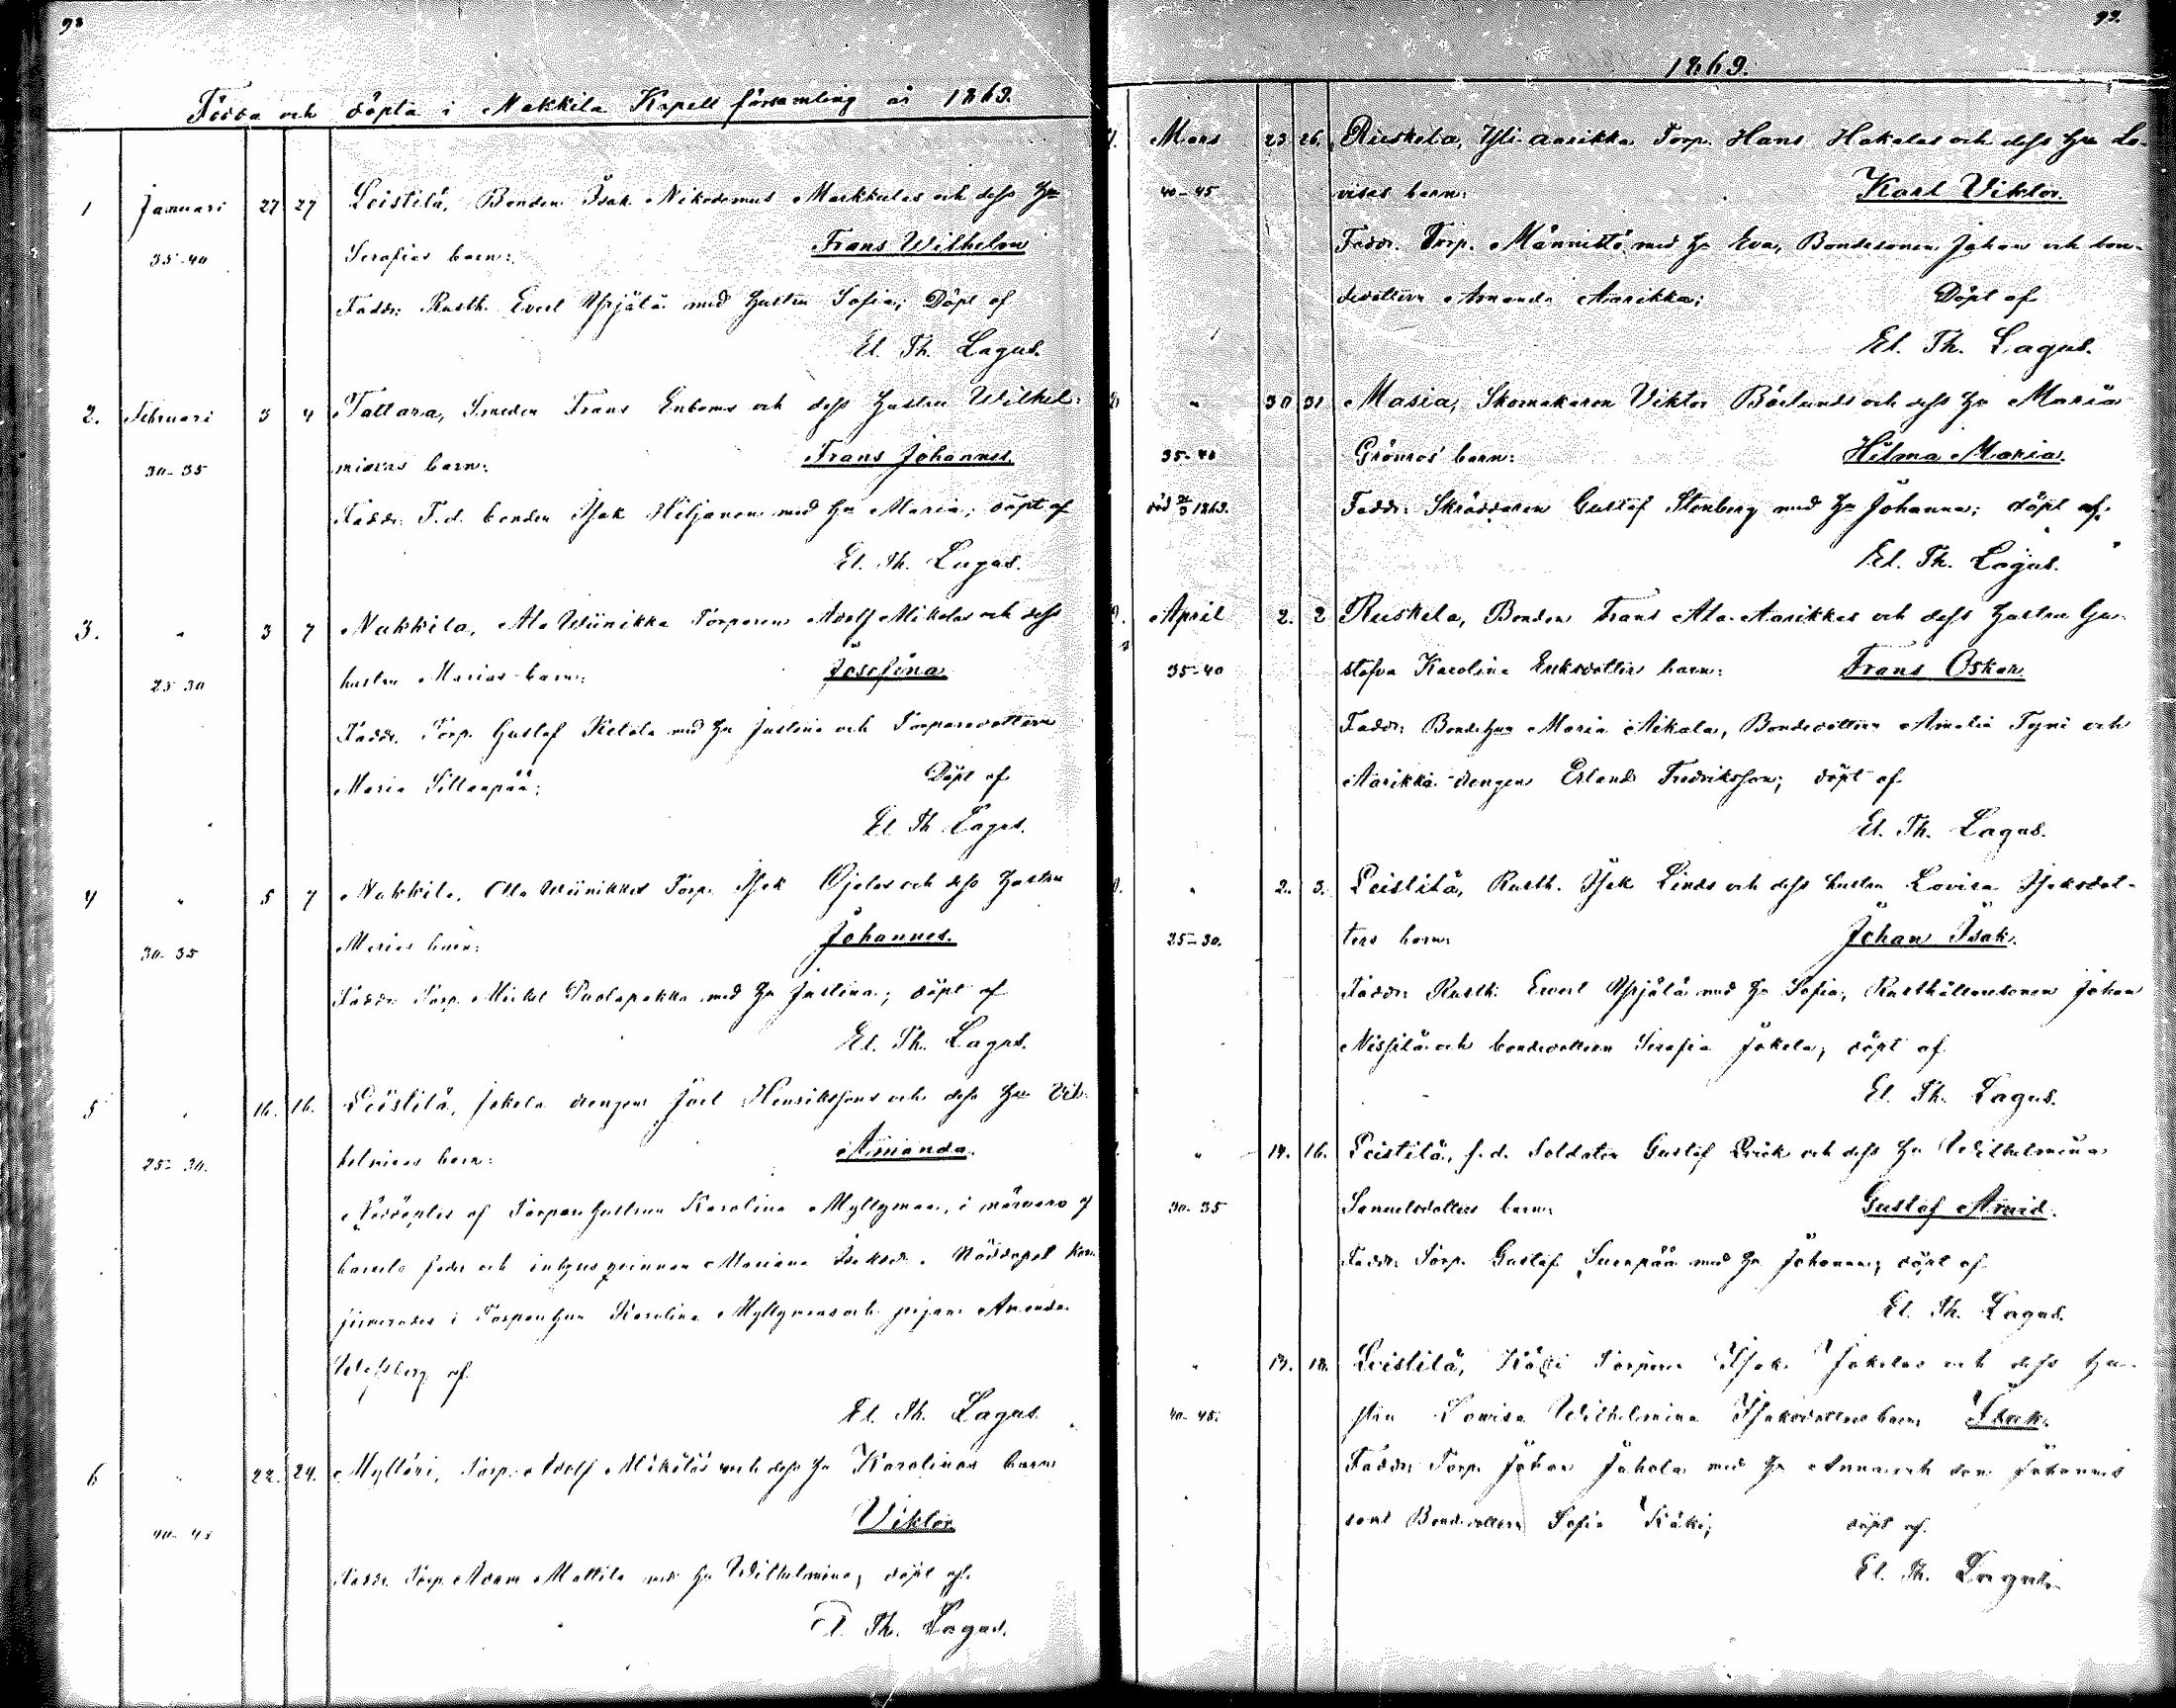 98
Födda och döpta i Nakkila Kapell församling år 1869.
1 Januari 27 27 Leistilä, Bonden Isak Nikodemus Markkulas och dess Hu
35-40 Serafias barn: Frans Wilhelm
Faddr: Rusth. Evert Yrjälä med hustru Sofia; Döpt af
El. Th. Lagus.
2. Februari 3 4 Tattara, Smeden Frans Enboms och dess hustru Wilhel-
30-35 minas barn: Frans Johannes.
Faddr: F.d. bonden Isak Hiljanen med Hu Maria; döpt af
El. Th. Lagus.
3. " 3 7 Nakkila, Ala Wiinikka Torparen Adolf Mikolas och dess
25-30 hustru Marias barn: Josefina
Faddr. Torp. Gustaf Ketola med Hu Justina och Torparedottern
Maria Sillanpää; Döpt af
El. Th. Lagus.
4 " 5 7 Nakkila, Ala Wiinikkas Torp. Isak Ojalas och dess hustru
30-35 Marias barn: Johannes.
Faddr. Torp. Mickel Puolapakka med Hu Justina; döpt af
El. Th. Lagus.
5 " 16. 16. Leistilä, Jokela drengen Joel Henrikssons och dess Hu Vil-
25-30. helminas barn: Amanda.
Nöddöptes af Torparhustrun Karolina Myllymaa, i närvaro af
barnets fader och inhysqvinnan Mariana Isaksd. Nöddopet kon-
firmerades i Torparhun Karolina Myllymaas och pigan Amanda
af
El. Th. Lagus.
6 " 22. 24. Myllöri, Torp. Adolf Mikolas och dess Hu Karolinas barn
40-45 Viktor
Faddr. Torp. Adam Mattila med Hu Wilhelmina; döpt af
El. Th. Lagus.
99.
1869.
Mars 23 26. Ruskela, Yli-Aarikka Torp. Hans Hakalas och dess Hu Lo-
40-45 visas barn: Karl Viktor.
Faddr. Torp. Männistö med Hu Eva, Bondesonen Johan och bon-
dedottern Amanda Aarikka; Döpt af
El. Th. Lagus.
" 30 31 Masia, Skomakaren Viktor Börlunds och dess Hu Maria
35-40 Grönros' barn: Hilma Maria.
död 1869. Faddr: Skräddaren Gustaf Stenberg med Hu Johanna; döpt af
El. Th. Lagus.
April 2. 2 Ruskela, Bonden Frans Ala-Aarikkas och dess hustru Gu-
35-40 stafva Karolina Eriksdotters barn: Frans Oskar.
Faddr: Bondehun Maria Aikala, Bondedottern Amalia Tyni och
Aarikka drengen Erland Fredriksson; döpt af
El. Th. Lagus.
" 2. 3. Leistilä, Rusth. Isak Linds och dess hustru Lovisa Isaksdot-
25-30. ters barn: Johan Isak.
Faddr: Rusth. Evert Yrjälä med Hu Sofia, Rusthållaresonen Johan
Nissilä och bondedottern Serafia Jokela; döpt af
El. Th. Lagus.
" 14. 16. Leistilä, f.d. Soldaten Gustaf Qvick och dess Hu Wilhelmina
30-35 Samuelsdotters barn: Gustaf Arvid.
Faddr: Torp. Gustaf Suenpää med Hu Johanna; döpt af
El. Th. Lagus.
" 13. 18. Leistilä, Käki Torparen Isak Jokelas och dess Hu-
40-45. stru Lovisa Wilhelmina Isaksdotters barn Isak.
Faddr: Torp. Johan Jokela med Hu Anna och son Johannes
samt Bondedottern Sofia Käki; döpt af
El. Th. Lagus.